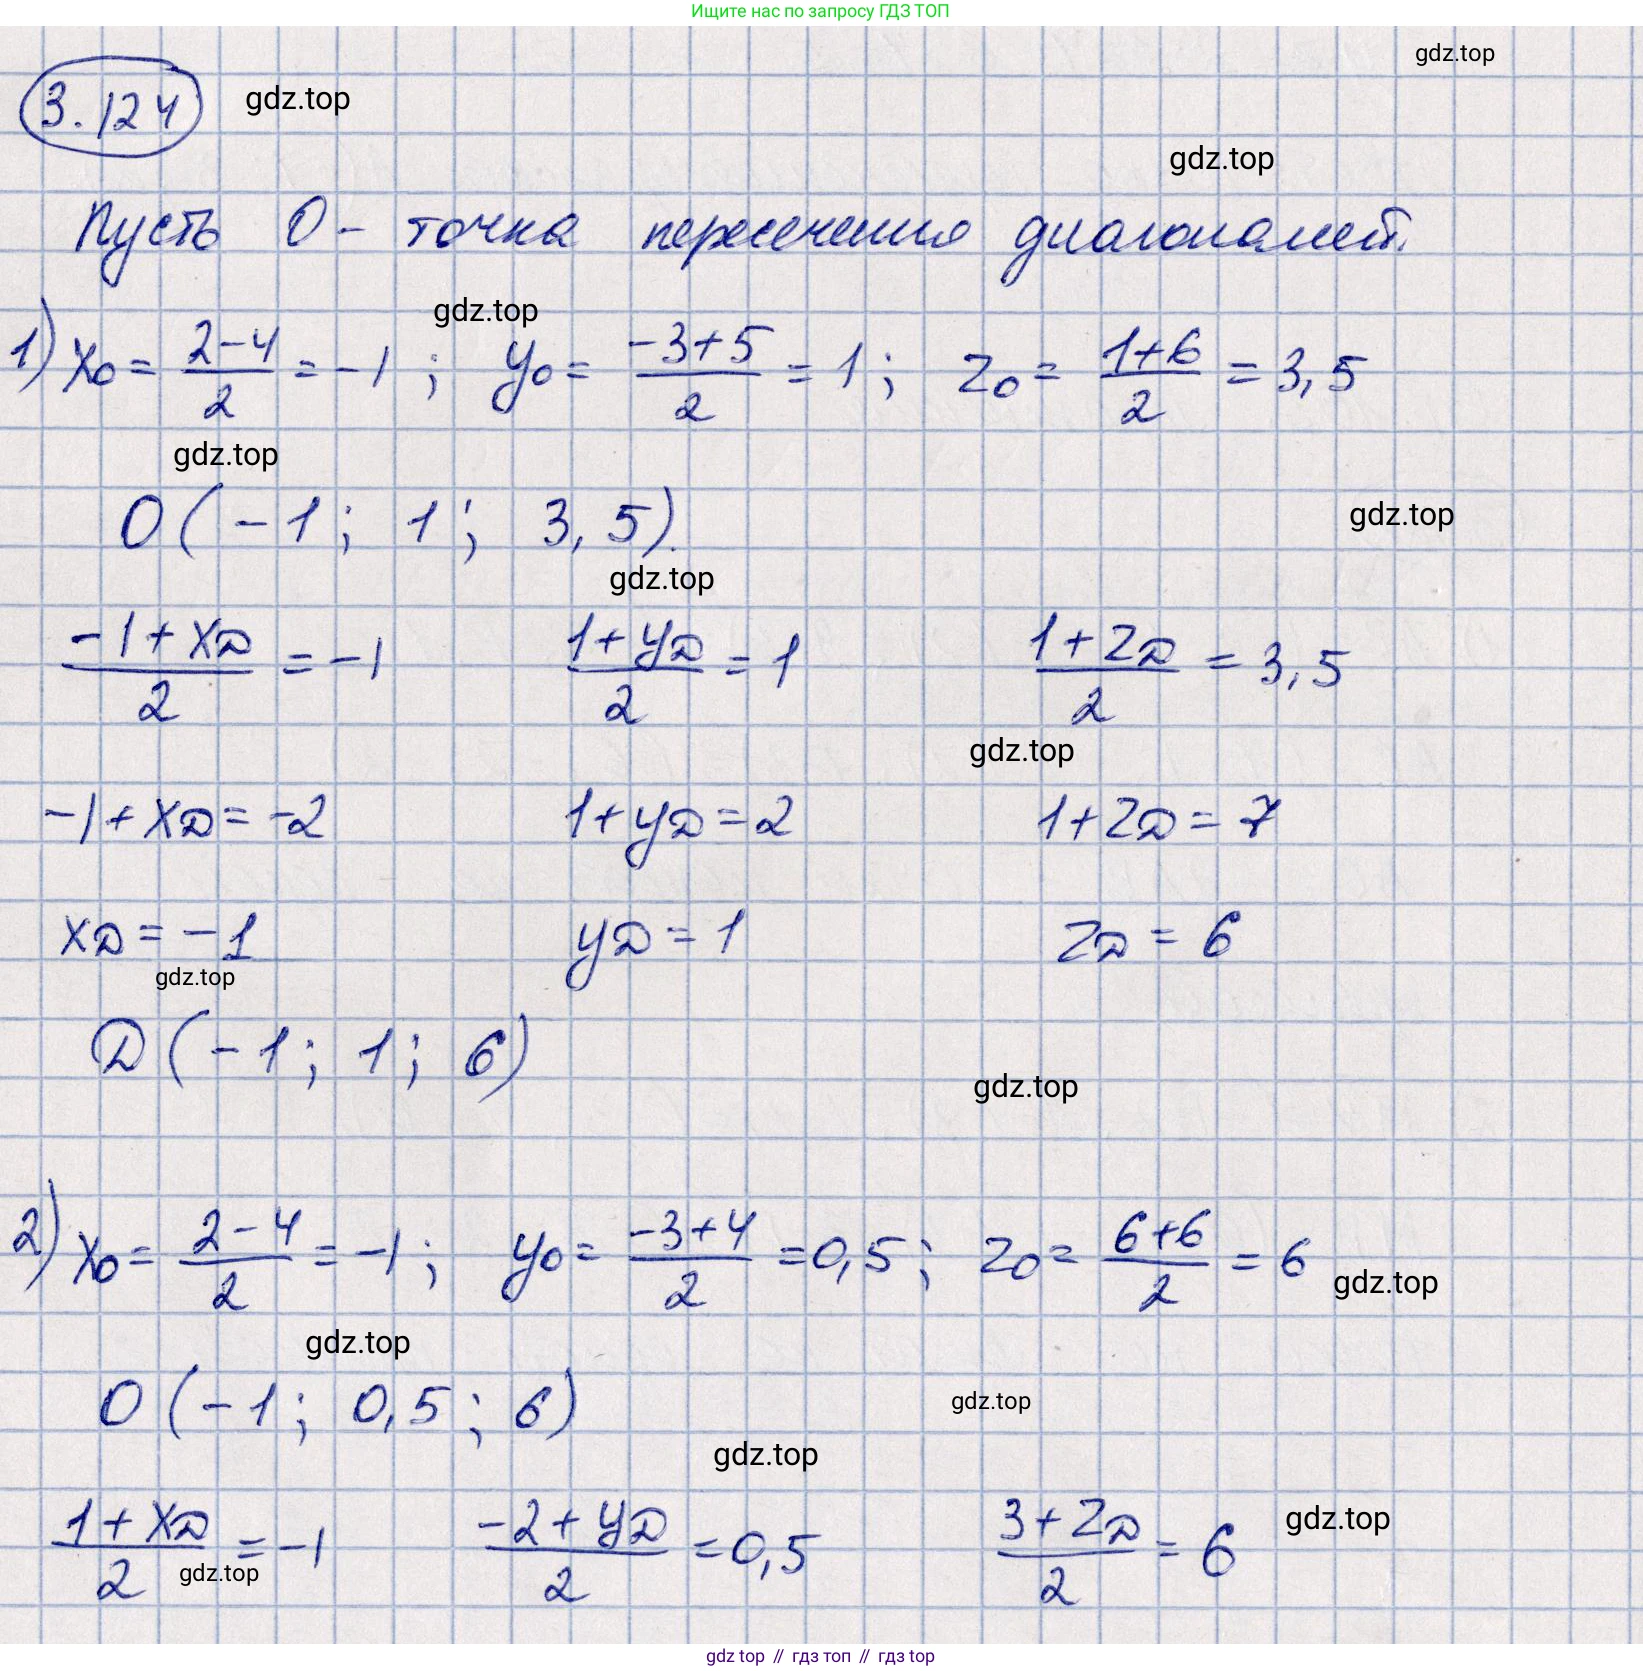 Ищите нас по запросу ГДЗ ТОП
gdz.top
3.124 gdz.top
gdz.top
Пусть O - точка пересечения диагоналей.
gdz.top
1) x₀ = (2-4)/2 = -1 ; y₀ = (-3+5)/2 = 1 ; z₀ = (1+6)/2 = 3,5
gdz.top
O (-1 ; 1 ; 3,5).
gdz.top
gdz.top
(-1+xD)/2 = -1 (1+yD)/2 = 1 (1+zD)/2 = 3,5
gdz.top
-1+xD = -2 1+yD = 2 1+zD = 7
xD = -1 yD = 1 zD = 6
gdz.top
D (-1 ; 1 ; 6)
gdz.top
2) x₀ = (2-4)/2 = -1 ; y₀ = (-3+4)/2 = 0,5 ; z₀ = (6+6)/2 = 6
gdz.top
gdz.top
O (-1 ; 0,5 ; 6)
gdz.top
gdz.top
(1+xD)/2 = -1 (-2+yD)/2 = 0,5 (3+zD)/2 = 6
gdz.top
gdz.top
gdz top // гдз топ // гdz top